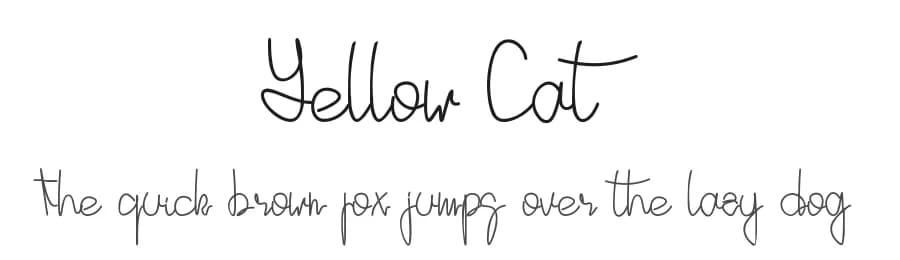 Yellow Cat
the quick brown fox jumps over the lazy dog